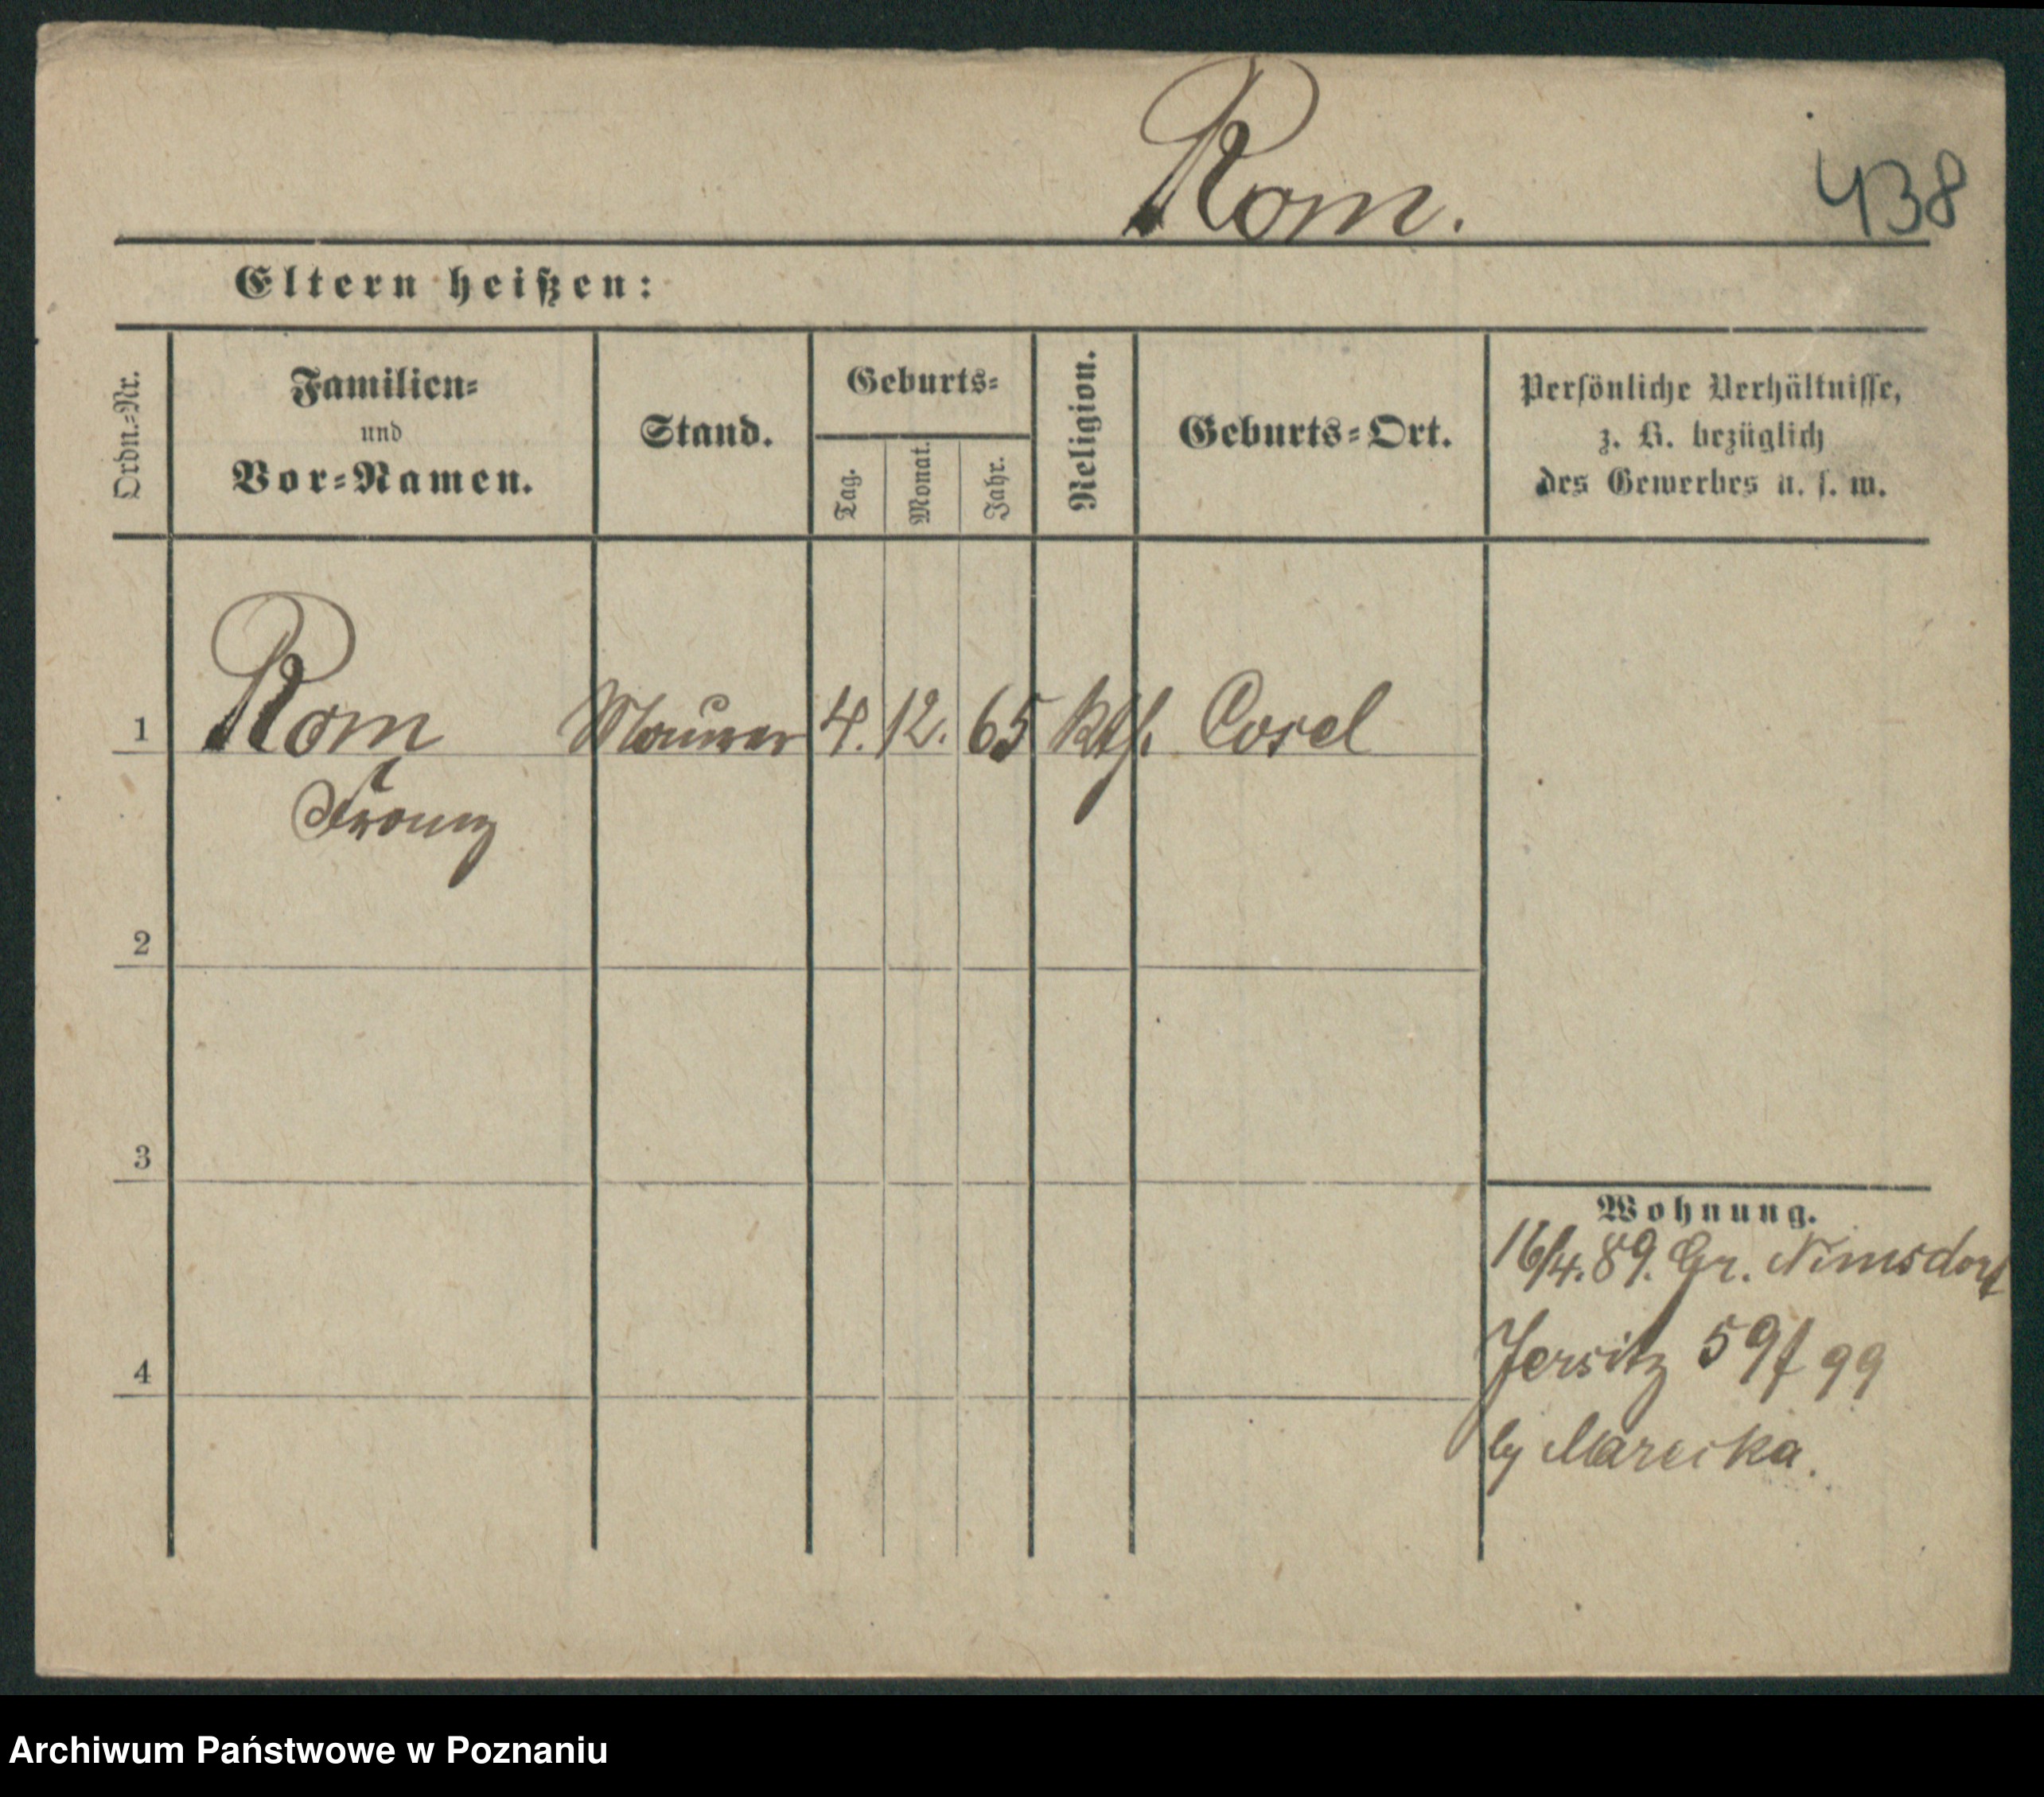 Rom.
438
Eltern heißen:
Ordn.-Nr.
Familien-
und
Vor-Namen.
Stand.
Geburts-
Tag.
Monat.
Jahr.
Religion.
Geburts-Ort.
Persönliche Verhältnisse,
z. B. bezüglich
des Gewerbes u. s. w.
1 Rom Maurer 4. 12. 65 kth. Cosel
Franz
2
3
Wohnung.
16/4. 89. Gr. Nimsdorf
Jersitz 59f 99
4
by Marecka.
Archiwum Państwowe w Poznaniu